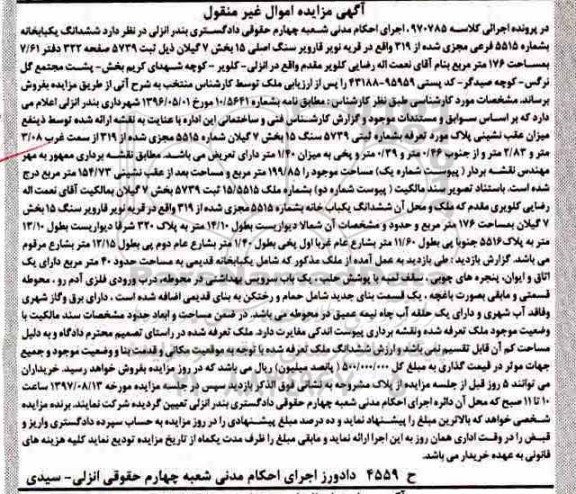 آگهی مزایده اموال غیر منقول
در پرونده اجرائی کلاسه ۹۷۰۷۸۵ ، اجرای احکام مدنی شعبه چهارم حقوقی دادگستری بندر انزلی در نظر دارد ششدانگ یکبابخانه
بشماره ۵۵۱۵ فرعی مجزی شده از ۳۱۹ واقع در قریه نویر قارویر سنگ اصلی ۱۵ بخش ۷ گیلان ذیل ثبت ۵۷۳۹ صفحه ۳۲۲ دفتر ۷/۶۱
بمساحت ۱۷۶ متر مربع بنام آقای نعمت اله رضایی کلویر مقدم واقع در انزلی- کلویر - کوچه شهدای کریم بخش- پشت مجتمع گل
نرگس- کوچه صیدگر- کد پستی ۹۵۹۵۹-۴۳۱۸۸ را پس از ارزیابی ملک توسط کارشناس منتخب به شرح آتی از طریق مزایده بفروش
برساند. مشخصات مورد کارشناسی طبق نظر کارشناس : مطابق نامه بشماره ۱۰/۵۶۴۱ مورخ ۱۳۹۶/۰۵/۰۱ شهرداری بندر انزلی اعلام می
دارد که بر اساس سوابق و مستندات موجود و گزارش کارشناس فنی و ساختمانی این اداره با عنایت به نقشه ارائه شده توسط ذینفع
میزان عقب نشینی پلاک مورد تعرفه بشماره ثبتی ۵۷۳۹ سنگ ۱۵ بخش ۷ گیلان شماره ۵۵۱۵ مجزی شده از ۳۱۹ از سمت غرب ۳/۰۸
متر و ۲/۸۳ متر و از جنوب ۰/۴۶ متر و ۰/۳۹ متر و پخی به میزان ۱/۴۰ متر دارای تعریض می باشد. مطابق نقشه برداری ممهور به مهر
مهندس نقشه بردار ( پیوست شماره یک) مساحت موجود را ۱۹۹/۸۵ متر مربع و مساحت بعد از عقب نشینی ۱۵۴/۷۳ متر مربع درج
شده است. باستناد تصویر سند مالکیت ( پیوست شماره دو) بشماره ملک ۱۵/۵۵۱۵ ثبت ۵۷۳۹ بخش ۷ گیلان بمالکیت آقای نعمت اله
رضایی کلویری مقدم که ملک و محل آن ششدانگ یکباب خانه بشماره ۵۵۱۵ مجزی شده از ۳۱۹ واقع در قریه نویر قارویر سنگ ۱۵ بخش
۷ گیلان بمساحت ۱۷۶ متر مربع و حدود و مشخصات آن شمالا دیواریست بطول ۱۴/۱۰ متر به پلاک ۳۲۰ شرقا دیواریست بطول ۱۳/۱۰
متر به پلاک ۵۵۱۶ جنوبا پی بطول ۱۱/۶۰ متر بشارع عام غربا اول پخی بطول ۱/۴۰ متر بشارع عام دوم پی بطول ۱۳/۱۵ متر بشارع مرقوم
می باشد. گزارش بازدید : طی بازدید به عمل آمده از ملک مذکور که شامل یکبابخانه قدیمی به مساحت حدود ۴۰ متر مربع دارای یک
اتاق و ایوان، پنجره های چوبی، سقف لمبه با پوشش حلب، یک باب سرویس بهداشتی در محوطه، درب ورودی فلزی آدم رو ، محوطه
قسمتی و مابقی بصورت باغچه ، یک قسمت بنای جدید شامل حمام و رختکن به بنای قدیمی اضافه شده است ، دارای برق وگاز شهری
وفاقد آب شهری و دارای یک حلقه آب چاه نیمه عمیق در محوطه می باشد. در ضمن مساحت و ابعاد حدود مشخصات سند مالکیت با
وضعیت موجود ملک تعرفه شده ونقشه برداری پیوست اندکی مغایرت دارد. ملک تعرفه شده در راستای تصمیم محترم دادگاه و به دلیل
مساحت کم آن قابل تقسیم نمی باشد و ارزش ششدانگ ملک تعرفه شده با توجه به موقعیت مکانی و قدمت بنا و وضعیت موجود و جمیع
جهات موثر در قیمت گذاری به مبلغ کل ۵۰۰/۰۰۰/۰۰۰ ( پانصد میلیون) ریال می باشد که در روز مزایده بفروش خواهد رسید. خریداران
می توانند ۵ روز قبل از جلسه مزایده از پلاک مشروحه به نشانی فوق الذکر بازدید سپس در جلسه مزایده مورخه ۱۳۹۷/۰۸/۱۳ ساعت
۱۰ تا ۱۱ صبح که محل آن دائره اجرای احکام مدنی شعبه چهارم حقوقی دادگستری بندر انزلی تعیین گردیده شرکت نمایند. برنده مزایده
شخصی خواهد که بالاترین مبلغ را پیشنهاد نماید و ده درصد مبلغ پیشنهادی را در روز مزایده به حساب سپرده دادگستری واریز و
قبض را در وقت اداری همان روز به این اجرا ارائه نماید و مابقی مبلغ را ظرف مدت یکماه از تاریخ مزایده تودیع نماید کلیه هزینه های
قانونی به عهده خریدار می باشد.
ح ۴۵۵۹ دادورز اجرای احکام مدنی شعبه چهارم حقوقی انزلی- سیدی